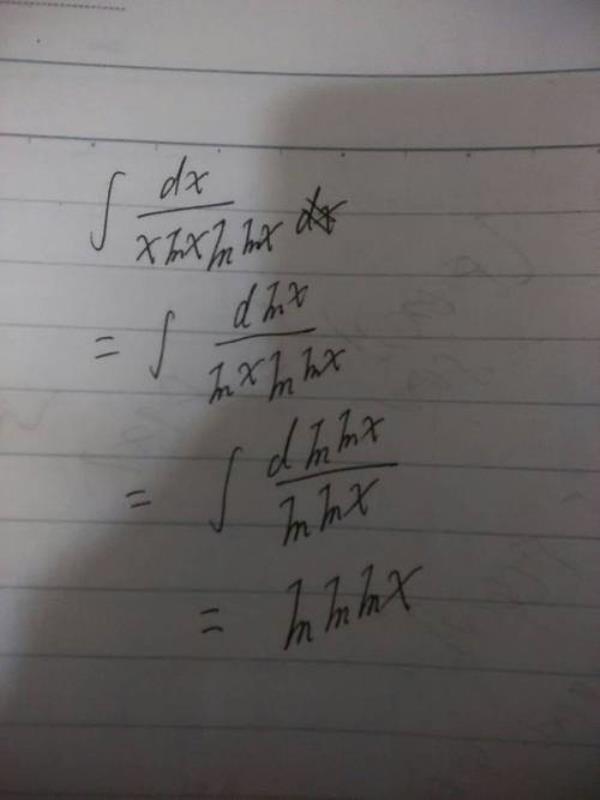 ∫ dx / (x ln x ln ln x)
= ∫ d ln x / (ln x ln ln x)
= ∫ d ln ln x / (ln ln x)
= ln ln ln x